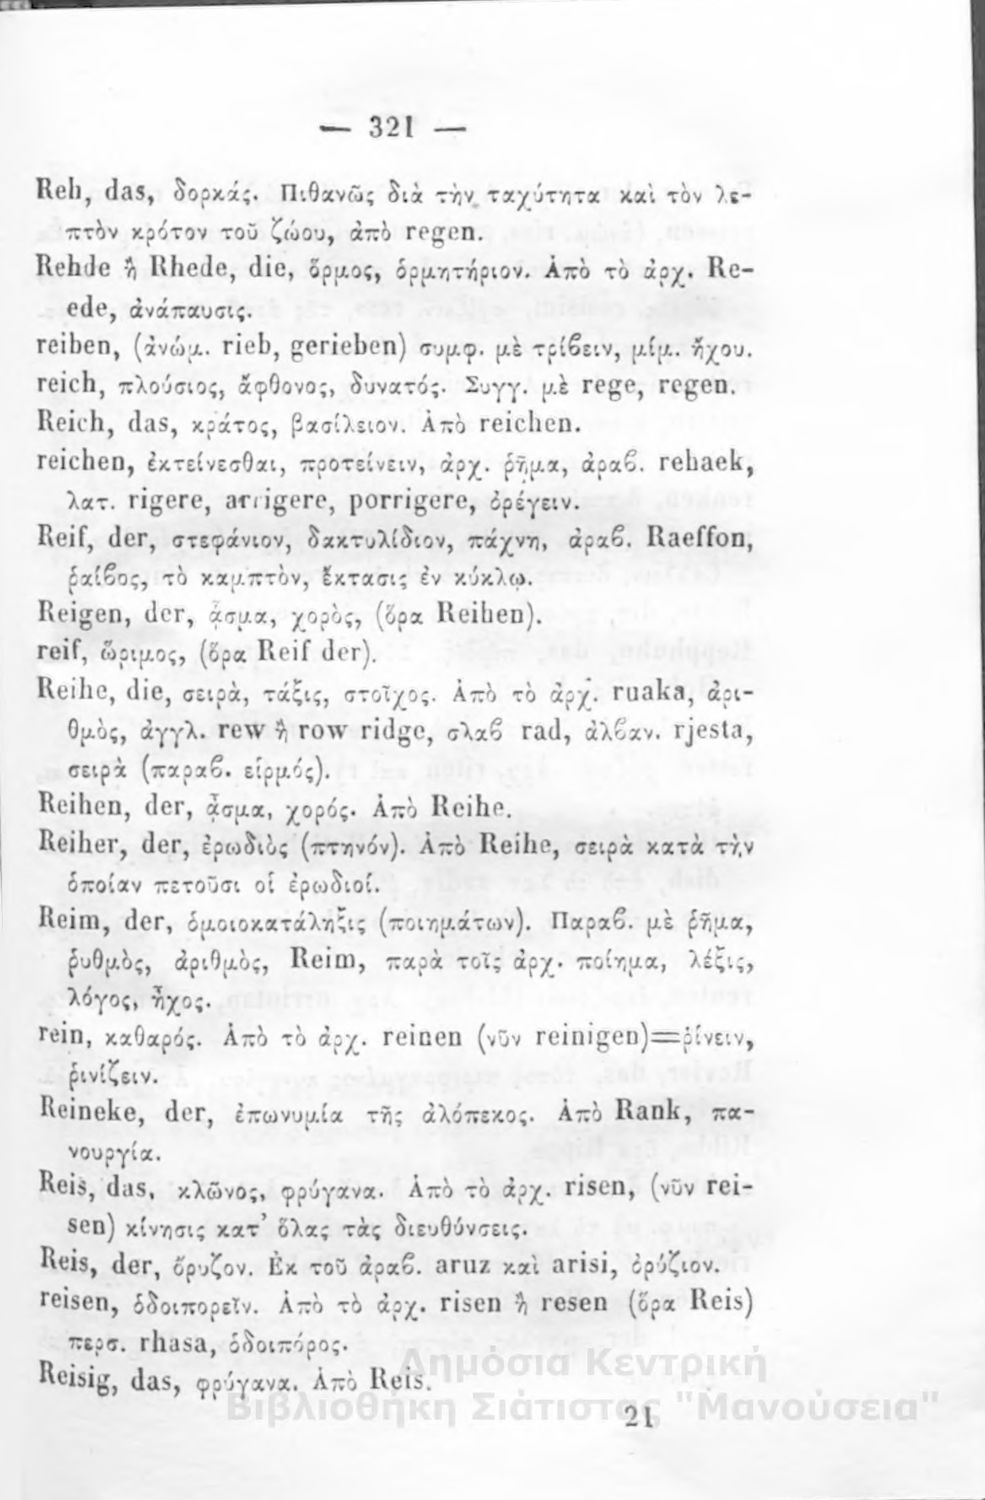 — 321 —
Reh, das, δορκάς. Πιθανῶς διὰ τὴν ταχύτητα καὶ τὸν λε-
πτὸν κρότον τοῦ ζώου, ἀπὸ regen.
Rehde ἢ Rhede, die, ὅρμος, ὁρμητήριον. Ἀπὸ τὸ ἀρχ. Re-
ede, ἀνάπαυσις.
reiben, (ἀνώμ. rieb, gerieben) συμφ. μὲ τρίβειν, μίμ. ἤχου.
reich, πλούσιος, ἄφθονος, δυνατός. Συγγ. μὲ rege, regen.
Reich, das, κράτος, βασίλειον. Ἀπὸ reichen.
reichen, ἐκτείνεσθαι, προτείνειν, ἀρχ. ῥῆμα, ἀραβ. rehaek,
λατ. rigere, arrigere, porrigere, ὀρέγειν.
Reif, der, στεφάνιον, δακτυλίδιον, πάχνη, ἀραβ. Raeffon,
ῥαίβος, τὸ καμπτὸν, ἔκτασις ἐν κύκλῳ.
Reigen, der, ᾆσμα, χορὸς, (ὅρα Reihen).
reif, ὥριμος, (ὅρα Reif der).
Reihe, die, σειρὰ, τάξις, στοῖχος. Ἀπὸ τὸ ἀρχ. ruaka, ἀρι-
θμὸς, ἀγγλ. rew ἢ row ridge, σλαβ rad, ἀλβαν. rjesta,
σειρὰ (παραβ. εἱρμός).
Reihen, der, ᾆσμα, χορός. Ἀπὸ Reihe.
Reiher, der, ἐρωδιὸς (πτηνόν). Ἀπὸ Reihe, σειρὰ κατὰ τὴν
ὁποίαν πετοῦσι οἱ ἐρωδιοί.
Reim, der, ὁμοιοκατάληξις (ποιημάτων). Παραβ. μὲ ῥῆμα,
ῥυθμὸς, ἀριθμὸς, Reim, παρὰ τοῖς ἀρχ. ποίημα, λέξις,
λόγος, ἦχος.
rein, καθαρός. Ἀπὸ τὸ ἀρχ. reinen (νῦν reinigen)=ῥίνειν,
ῥινίζειν.
Reineke, der, ἐπωνυμία τῆς ἀλόπεκος. Ἀπὸ Rank, πα-
νουργία.
Reis, das, κλῶνος, φρύγανα. Ἀπὸ τὸ ἀρχ. risen, (νῦν rei-
sen) κίνησις κατ' ὅλας τὰς διευθύνσεις.
Reis, der, ὄρυζον. Ἐκ τοῦ ἀραβ. aruz καὶ arisi, ὀρύζιον.
reisen, ὁδοιπορεῖν. Ἀπὸ τὸ ἀρχ. risen ἢ resen (ὅρα Reis)
περσ. rhasa, ὁδοιπόρος.
Reisig, das, φρύγανα. Ἀπὸ Reis.
21
Δημόσια Κεντρική
Βιβλιοθήκη Σιάτιστας "Μανούσεια"